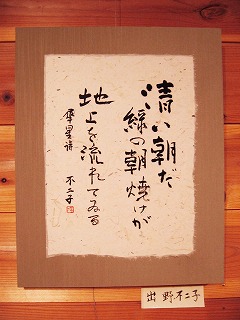 青い朝だ
緑の朝焼けが
地上を流れてゐる
摩星詩 不二子
出野不二子